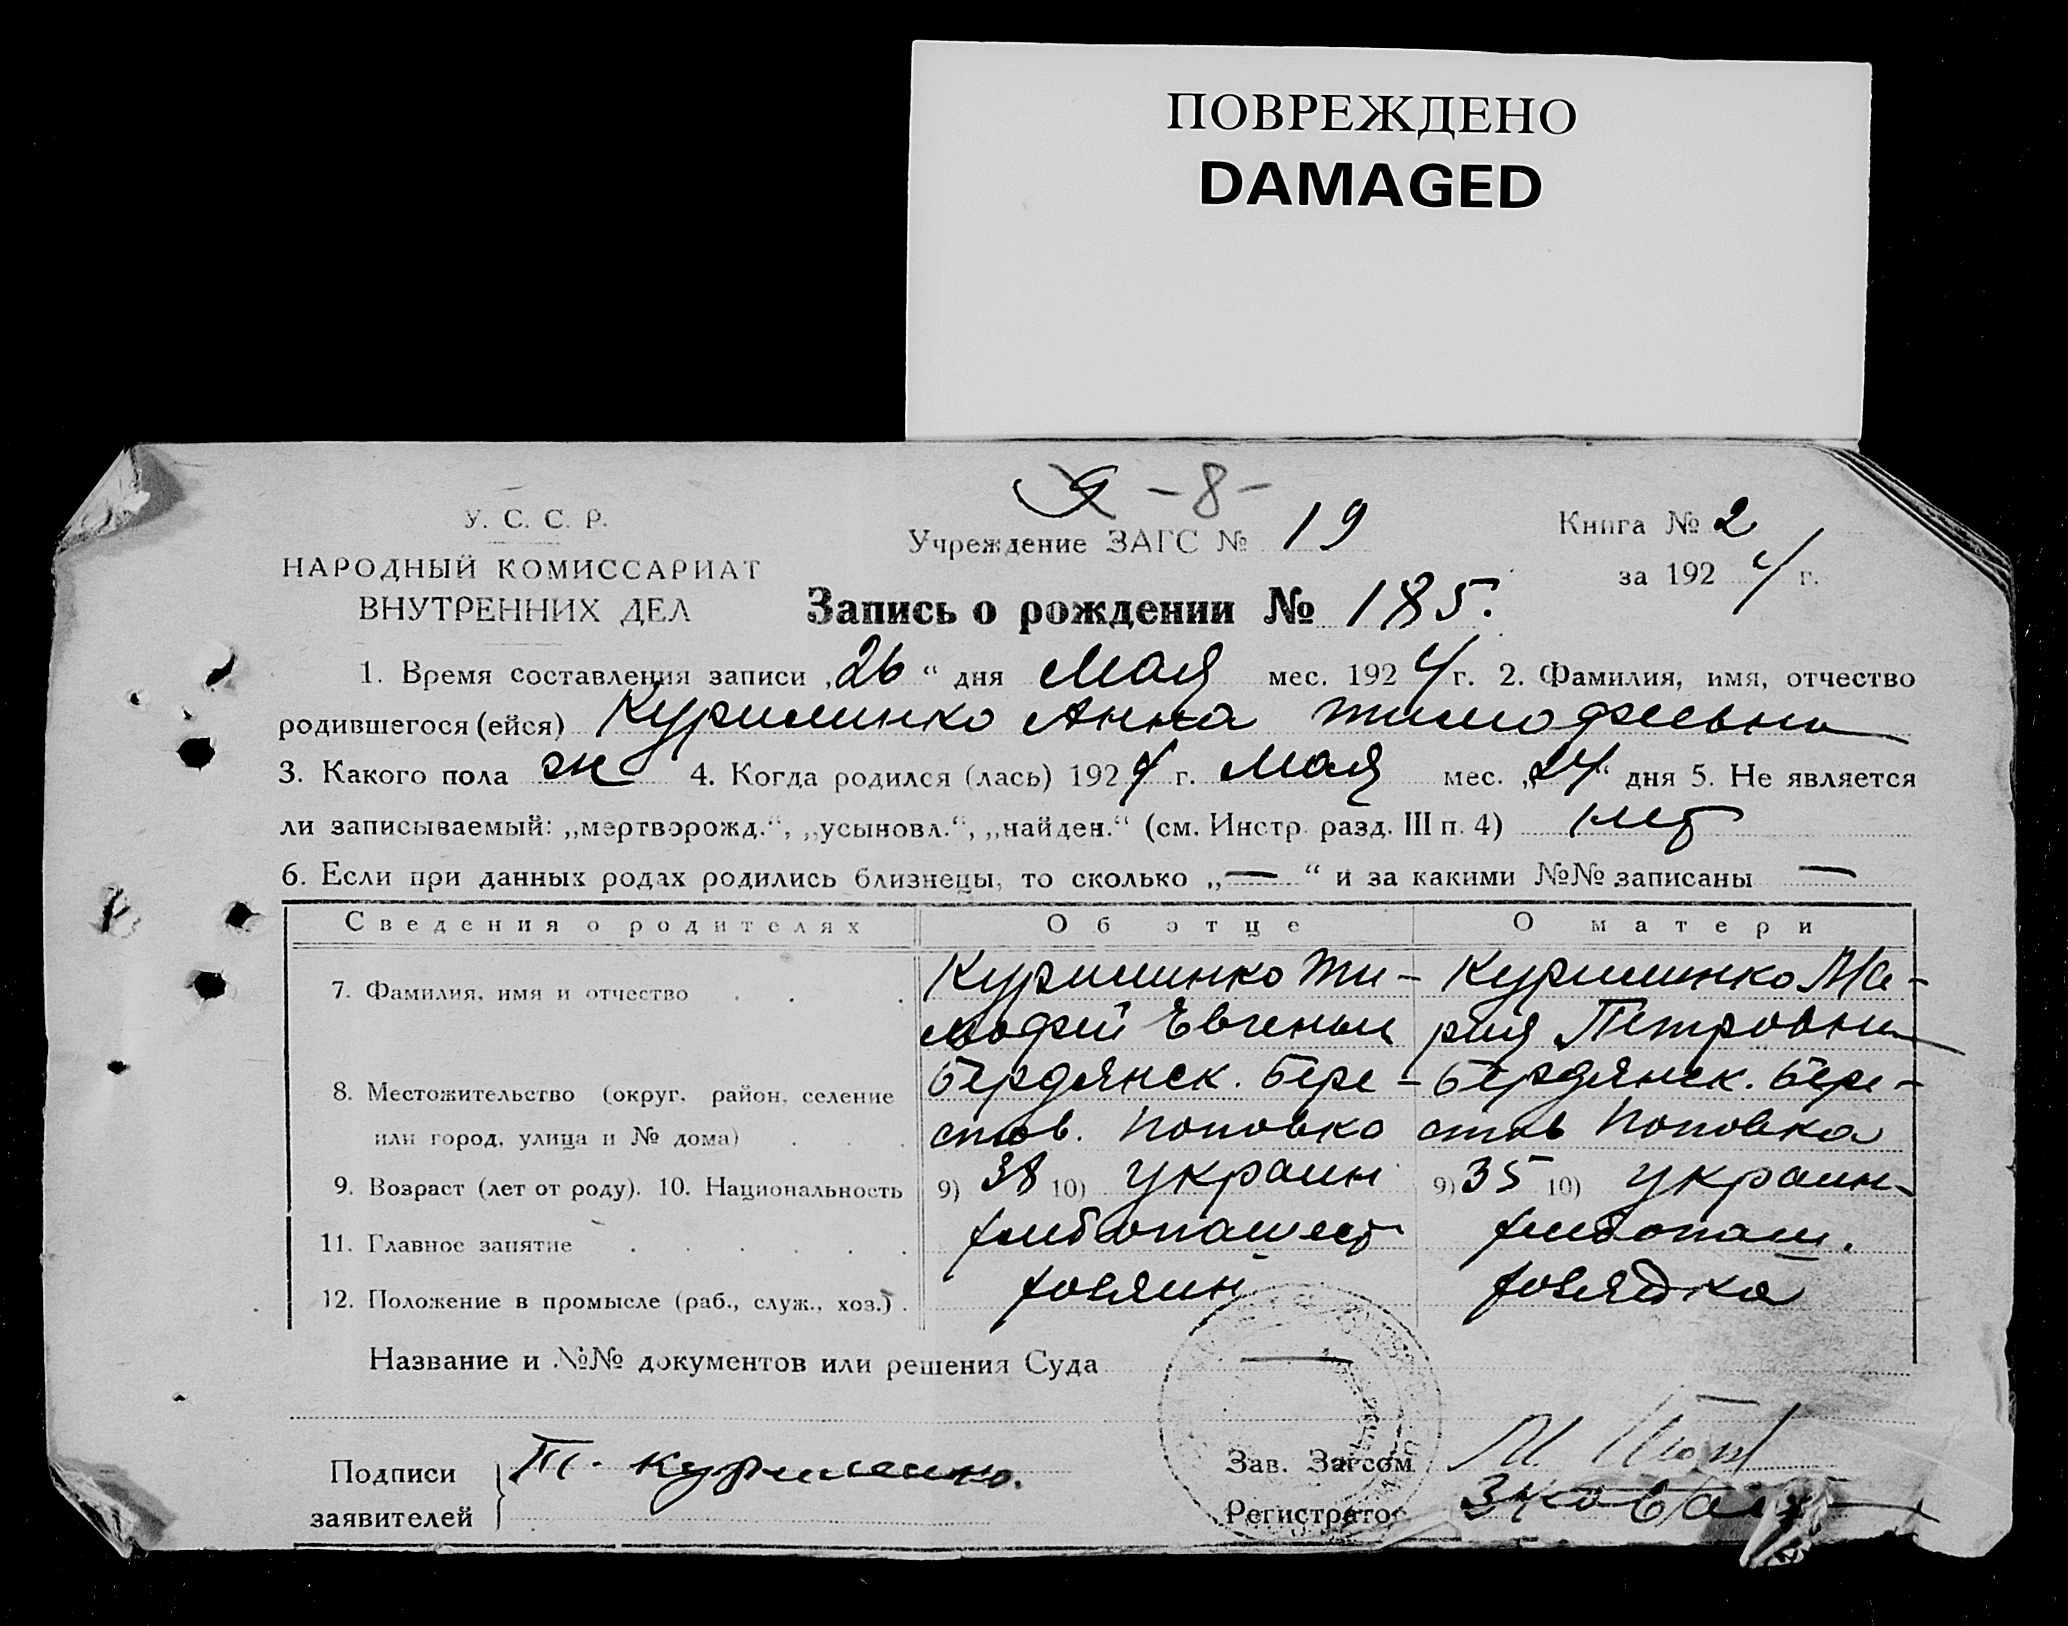 ПОВРЕЖДЕНО
DAMAGED
-8-
У. С. С. Р.
НАРОДНЫЙ КОМИССАРИАТ
ВНУТРЕННИХ ДЕЛ
Учреждение ЗАГС № 19
Книга № 2
за 1924 г.
Запись о рождении № 185.
1. Время составления записи „26“ дня Мая мес. 1924 г. 2. Фамилия, имя, отчество
родившегося (ейся) Куриминко Анна Тимофеевна
3. Какого пола ж 4. Когда родился (лась) 1924 г. Мая мес. „24“ дня 5. Не является
ли записываемый: „мертворожд.“, „усыновл.“, „найден.“ (см. Инстр. разд. III п. 4) нет
6. Если при данных родах родились близнецы, то сколько „—“ и за какими №№ записаны —
Сведения о родителях Об отце О матери
7. Фамилия, имя и отчество Куриминко Ти- Куриминко Ма-
мофей Евгеньи рия Петровна
8. Местожительство (округ, район, селение Бердянск. Бере- Бердянск. Бере-
или город, улица и № дома) стов. Поповка стов Поповка
9. Возраст (лет от роду). 10. Национальность 9) 38 10) украин 9) 35 10) украин-
11. Главное занятие хлебопашест хлебопаш.
12. Положение в промысле (раб., служ., хоз.) хозяин хозяйка
Название и №№ документов или решения Суда —
Подписи заявителей Т. Куриленко.
Зав. Загсом
Регистратор